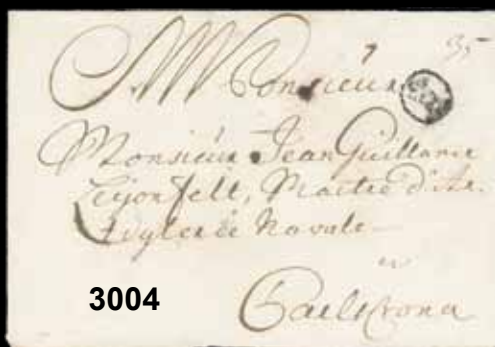 35
Monsieur
Monsieur Jean Guillaume
Leijonfelt, Maitre d'Ar-
tiglerie Navale
3004 Carlscrona